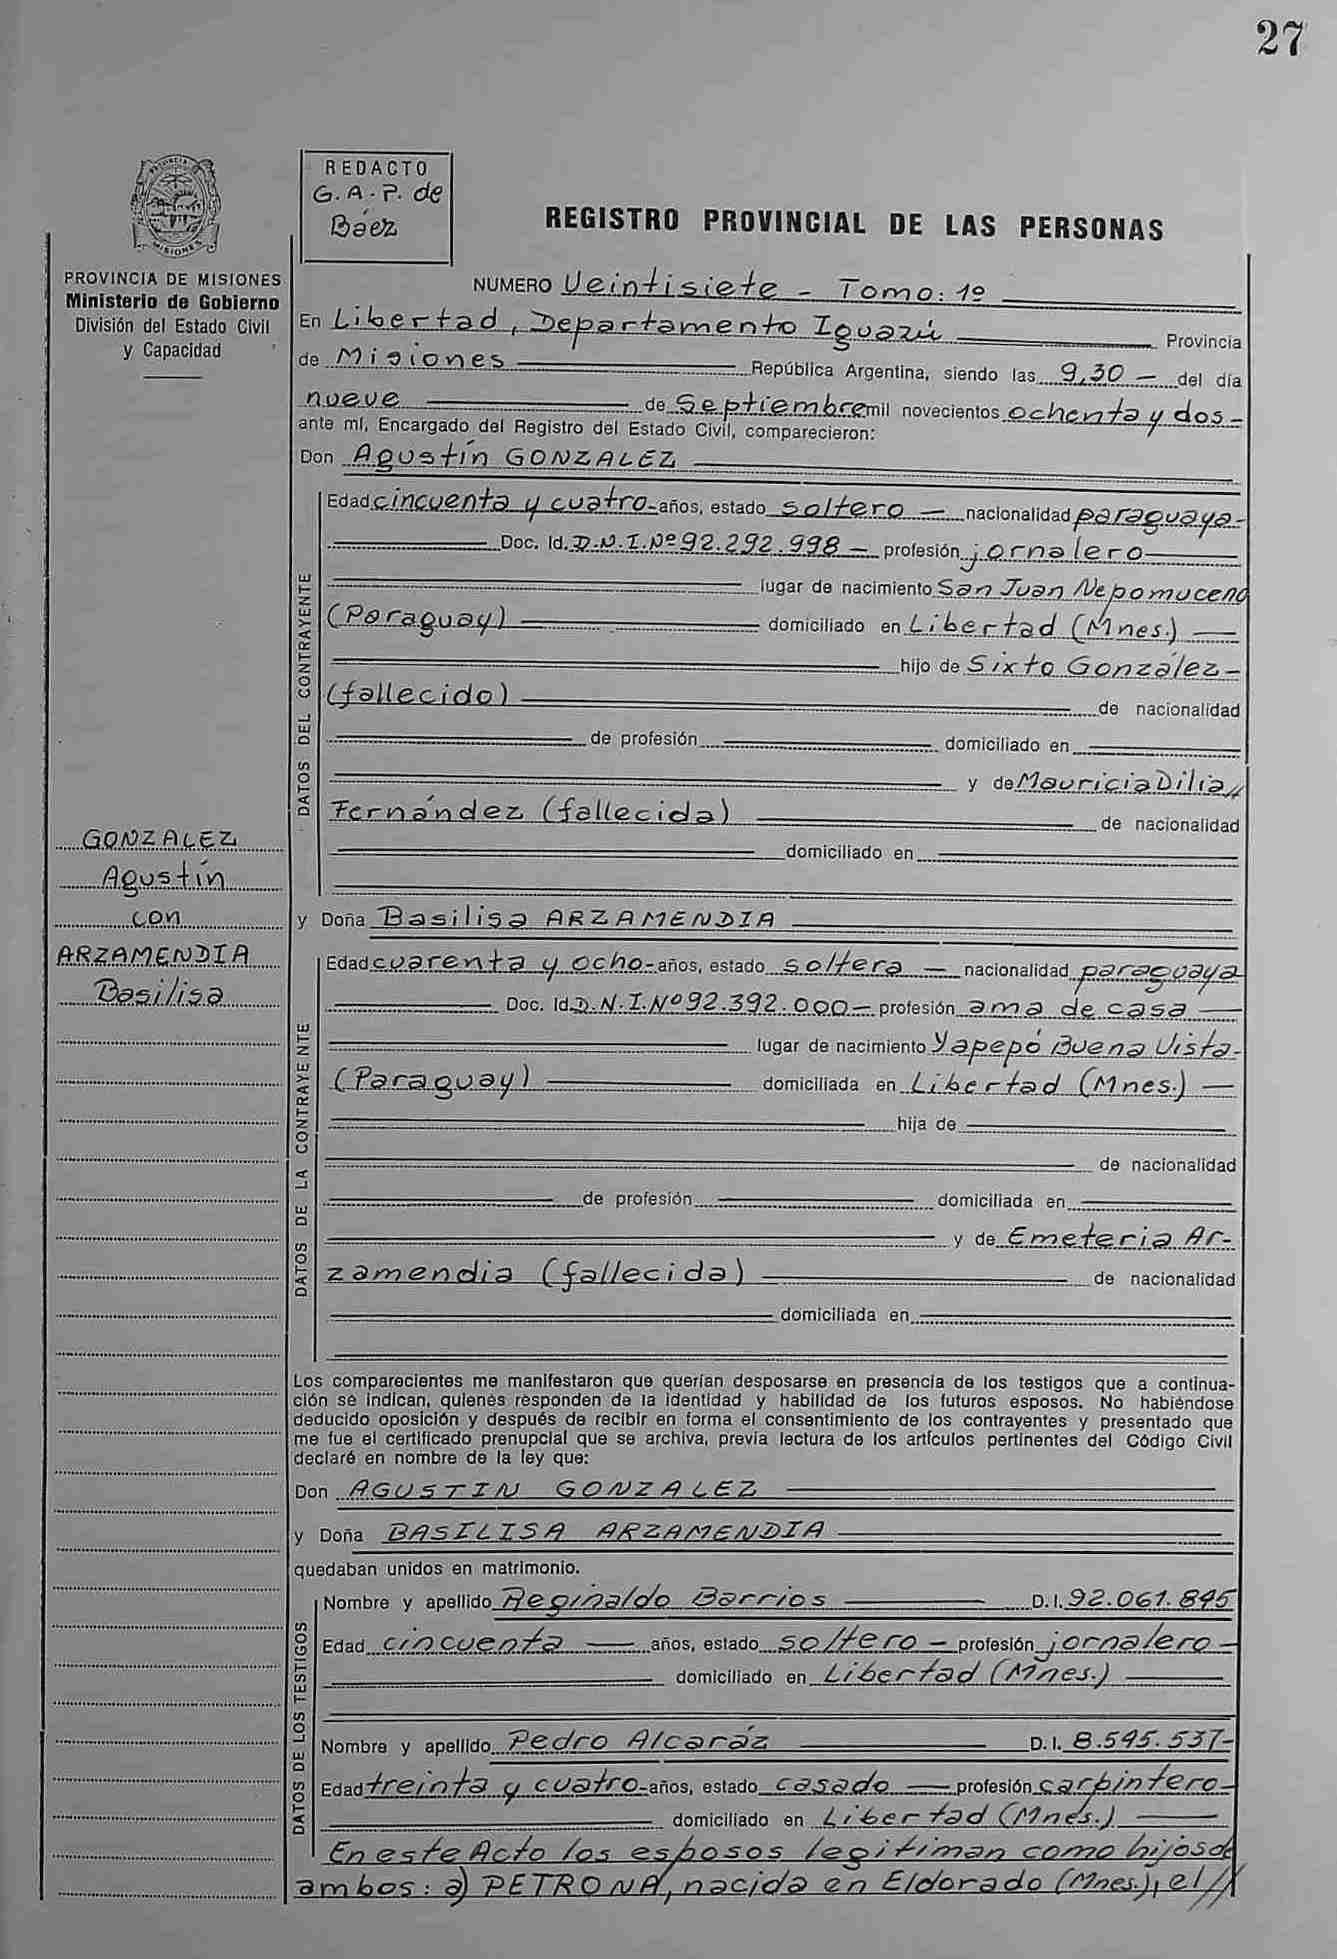 27
REDACTO
G.A.P. de
Báez
PROVINCIA DE MISIONES
Ministerio de Gobierno
División del Estado Civil
y Capacidad
REGISTRO PROVINCIAL DE LAS PERSONAS
NUMERO Veintisiete - Tomo: 1º
En Libertad, Departamento Iguazú Provincia
de Misiones República Argentina, siendo las 9,30 - del día
nueve de Septiembre mil novecientos ochenta y dos -
ante mí, Encargado del Registro del Estado Civil, comparecieron:
Don Agustín GONZALEZ
DATOS DEL CONTRAYENTE
Edad cincuenta y cuatro - años, estado soltero - nacionalidad paraguaya -
Doc. Id. D.N.I. Nº 92.292.998 - profesión jornalero
lugar de nacimiento San Juan Nepomuceno
(Paraguay) domiciliado en Libertad (Mnes.) -
hijo de Sixto González -
(fallecido) de nacionalidad
de profesión domiciliado en
y de Mauricia Dilia //
Fernández (fallecida) de nacionalidad
domiciliado en
GONZALEZ
Agustín
con
ARZAMENDIA
Basilisa
y Doña Basilisa ARZAMENDIA
DATOS DE LA CONTRAYENTE
Edad cuarenta y ocho - años, estado soltera - nacionalidad paraguaya
Doc. Id. D.N.I. Nº 92.392.000 - profesión ama de casa -
lugar de nacimiento Yapepó Buena Vista -
(Paraguay) domiciliada en Libertad (Mnes.) -
hija de
de nacionalidad
de profesión domiciliada en
y de Emeteria Ar-
zamendia (fallecida) de nacionalidad
domiciliada en
Los comparecientes me manifestaron que querían desposarse en presencia de los testigos que a continua-
ción se indican, quienes responden de la identidad y habilidad de los futuros esposos. No habiéndose
deducido oposición y después de recibir en forma el consentimiento de los contrayentes y presentado que
me fue el certificado prenupcial que se archiva, previa lectura de los artículos pertinentes del Código Civil
declaré en nombre de la ley que:
Don AGUSTIN GONZALEZ
y Doña BASILISA ARZAMENDIA
quedaban unidos en matrimonio.
DATOS DE LOS TESTIGOS
Nombre y apellido Reginaldo Barrios D.I. 92.061.845
Edad cincuenta años, estado soltero - profesión jornalero -
domiciliado en Libertad (Mnes.)
Nombre y apellido Pedro Alcaráz D.I. 8.545.537 -
Edad treinta y cuatro - años, estado casado - profesión carpintero -
domiciliado en Libertad (Mnes.)
En este Acto los esposos legitiman como hijos de
ambos: a) PETRONA, nacida en Eldorado (Mnes.), el //